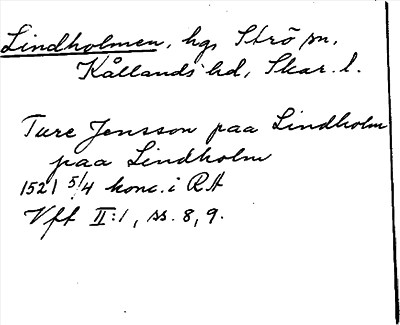 Lindholmen, hg, Strö sn,
Kållands hd, Skar. l.
Ture Jensson paa Lindholm
paa Lindholm
1521 5/4 konc. i RA
Vff II:1, ss. 8, 9.